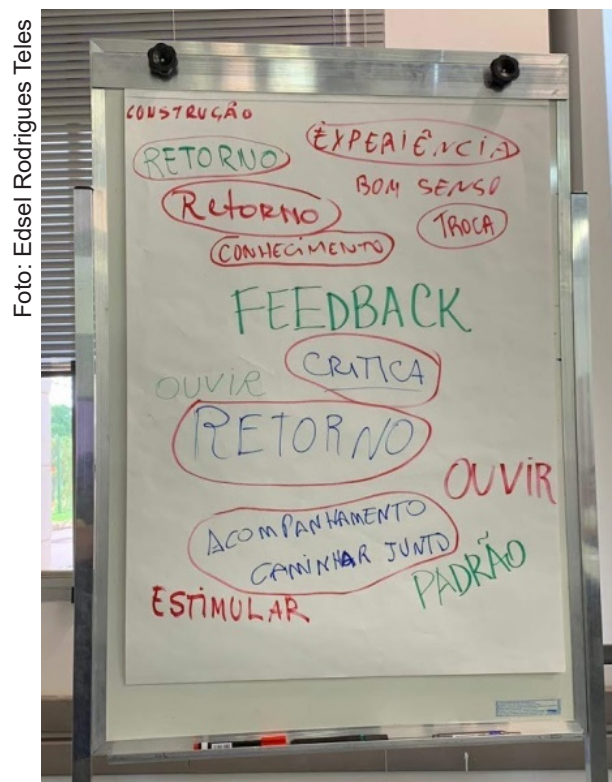 Foto: Edsel Rodrigues Teles
CONSTRUÇÃO
RETORNO
EXPERIÊNCIA
RETORNO
BOM SENSO
TROCA
CONHECIMENTO
FEEDBACK
CRITICA
OUVIR
RETORNO
OUVIR
ACOMPANHAMENTO
CAMINHAR JUNTO
PADRÃO
ESTIMULAR